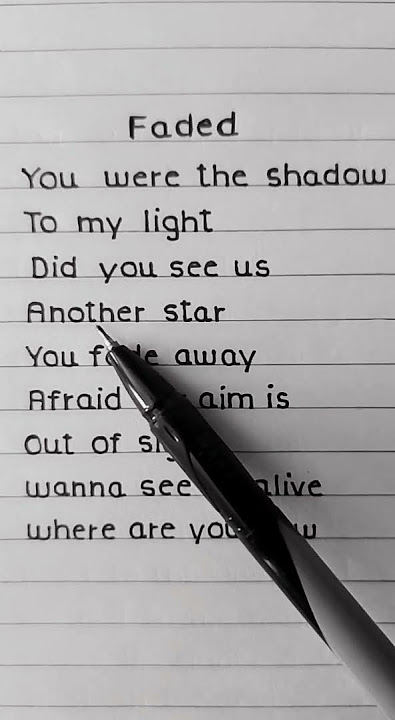 Faded
You were the shadow
To my light
Did you see us
Another star
You away
Afraid aim is
out of
wanna see alive
where are you